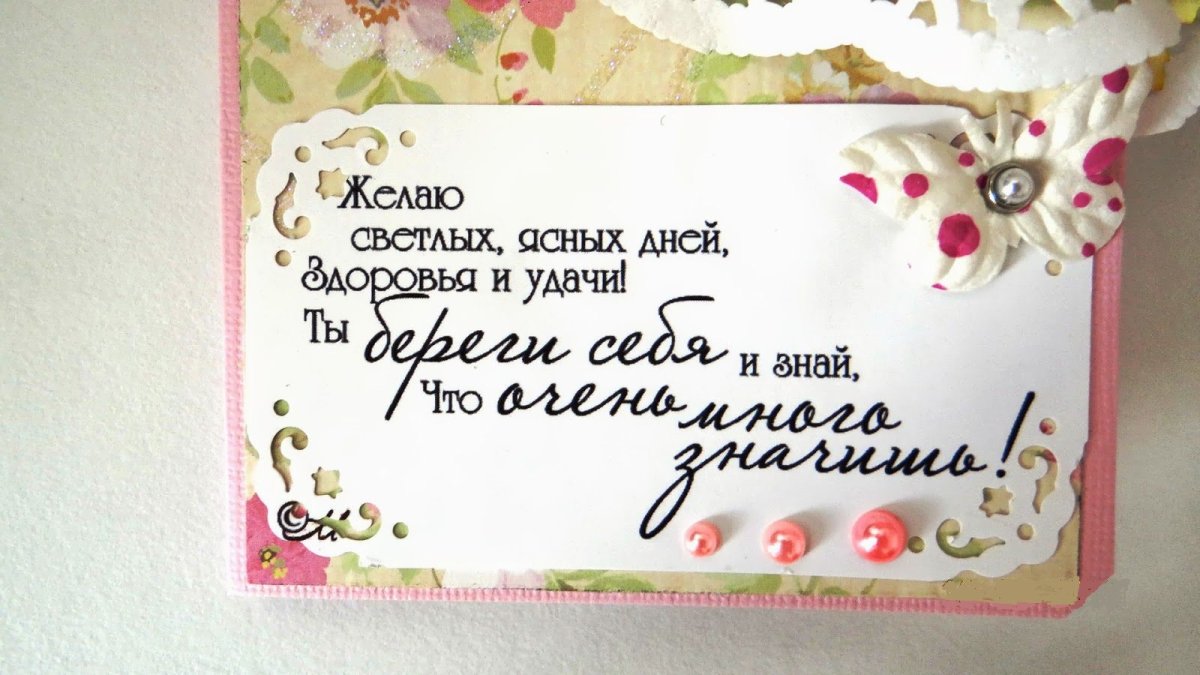 Желаю
светлых, ясных дней,
Здоровья и удачи!
Ты береги себя и знай,
Что очень много
значишь!